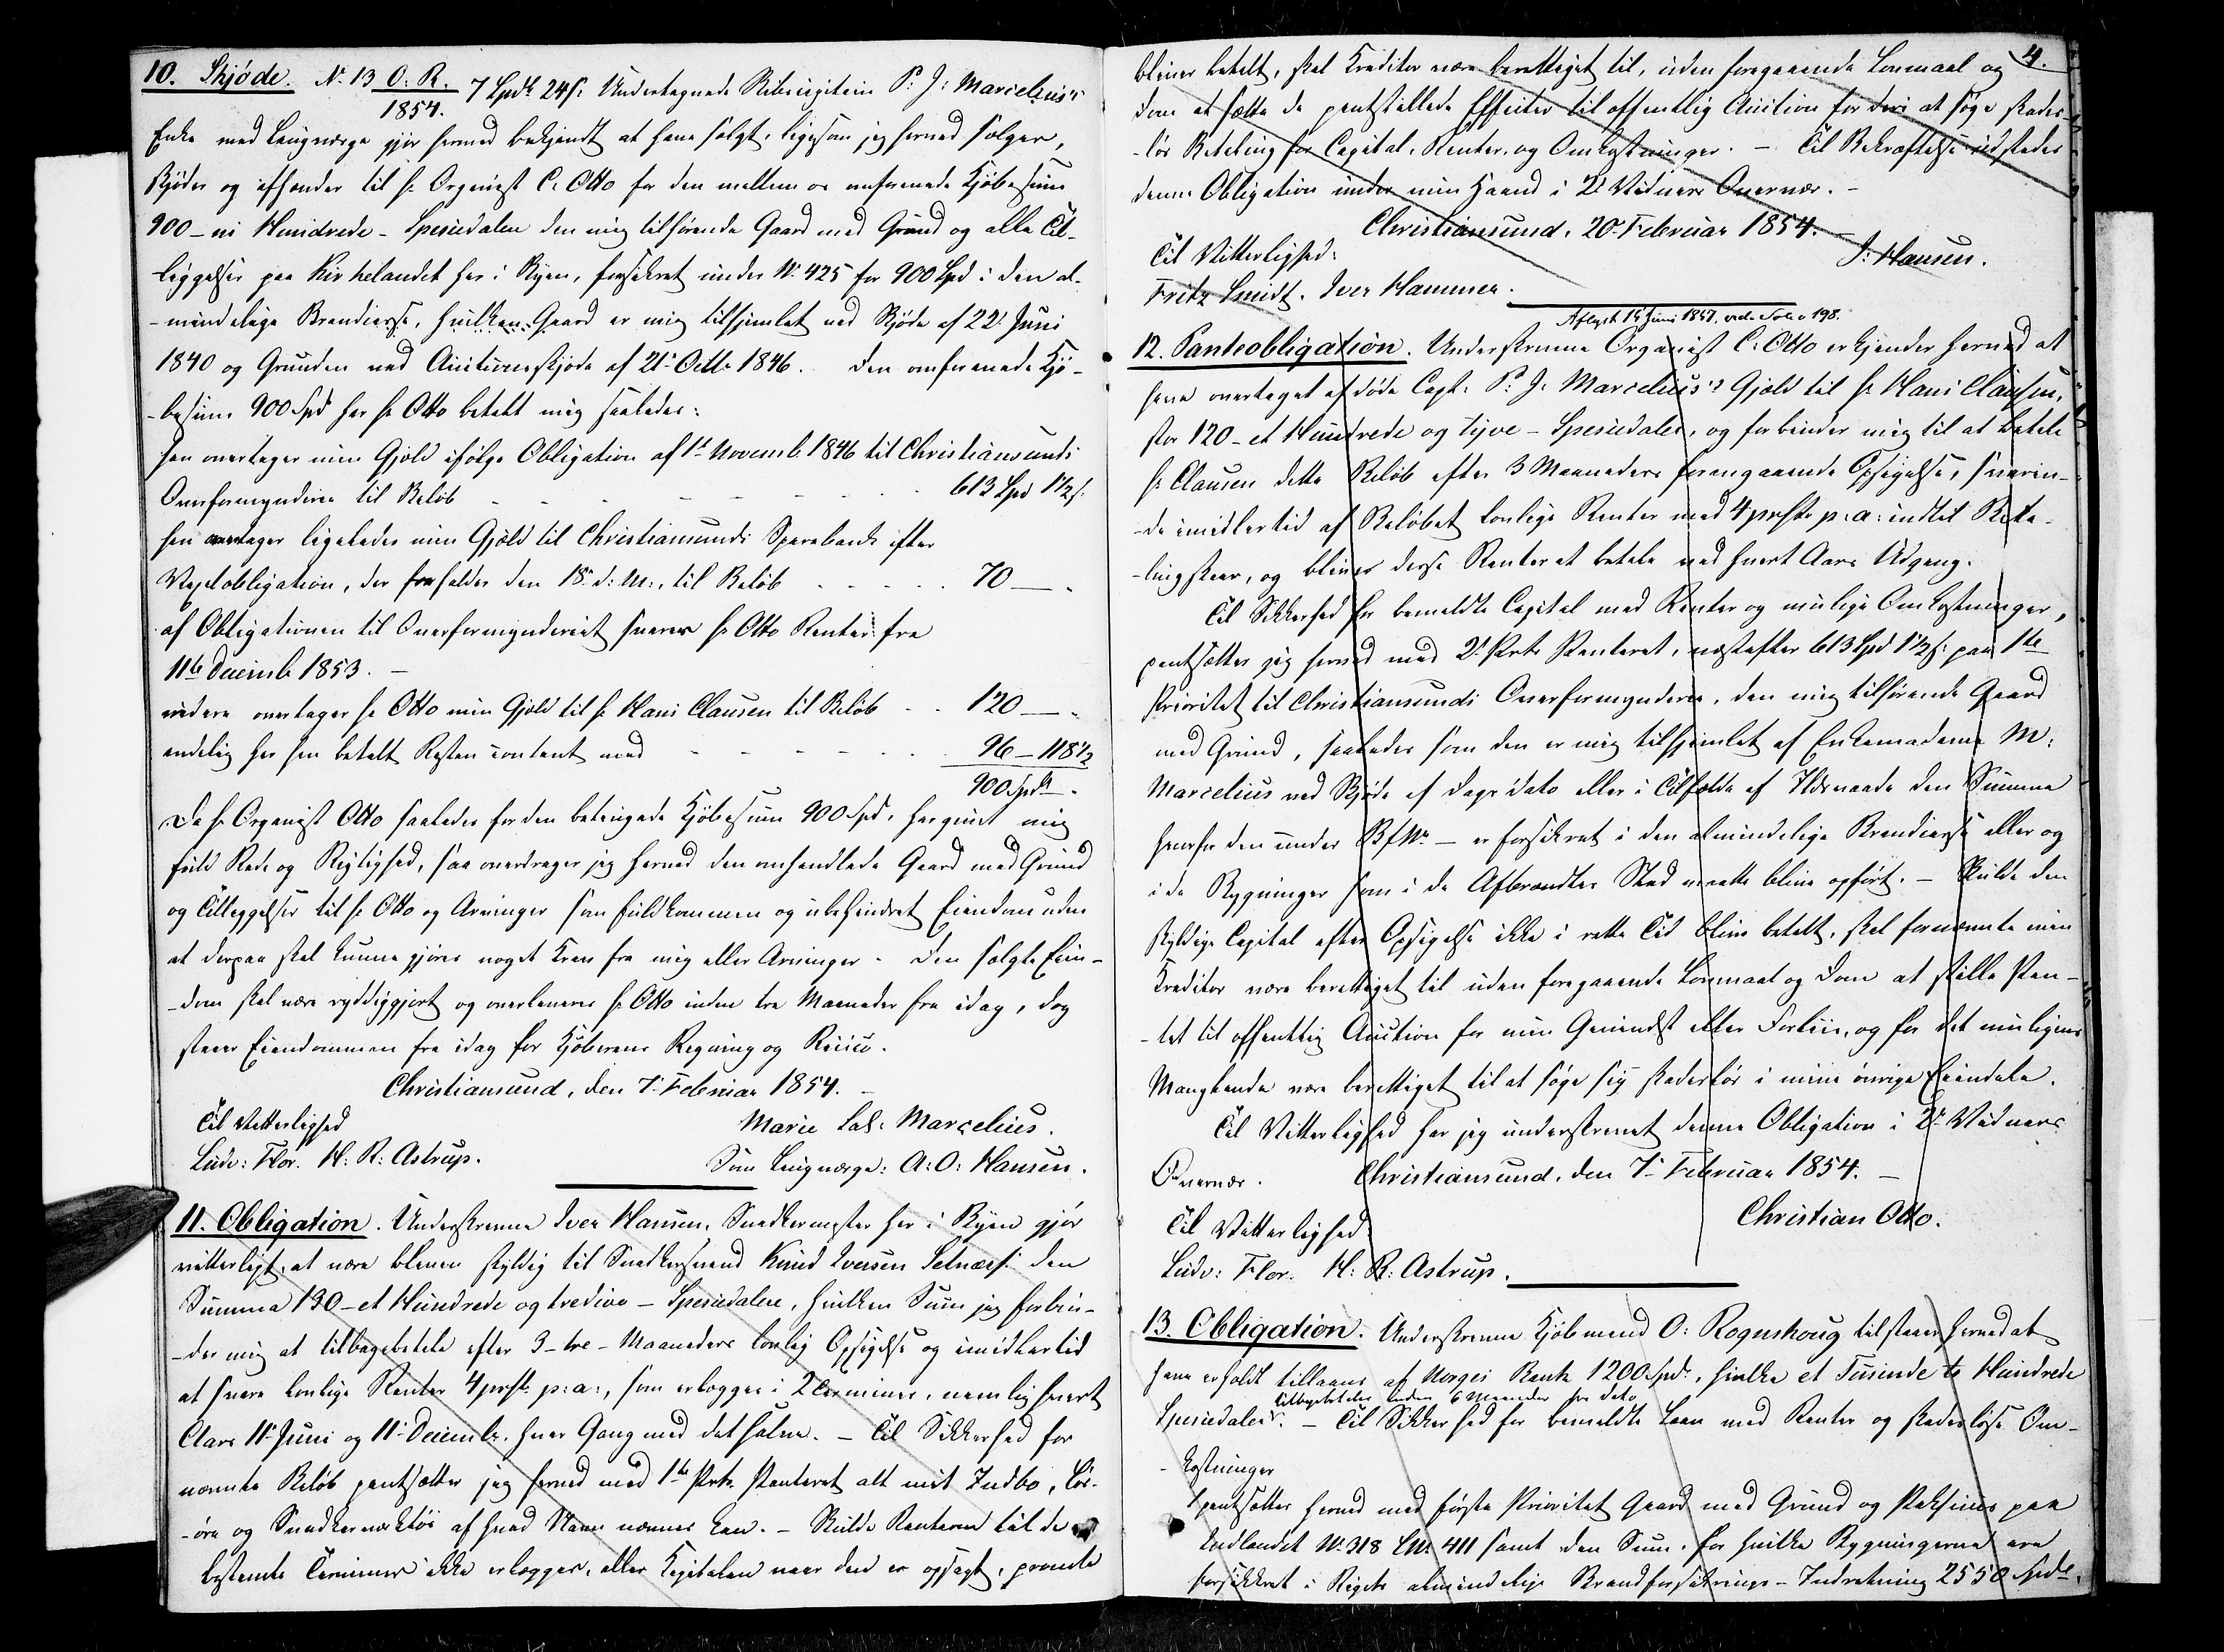 10. Skjøde. No 13 O. R. 7 Spd 24 s. Undertegnede Skibscapitain P: J: Marcelius's
1854.
Enke med Laugværge gjør hermed bekjendt at have solgt, ligesom jeg hermed sælger,
skjøder og afhænder til Hr Organist C. Otto for den mellem os omforenede Kjøbesum
900 – ni Hundrede – Speciedaler den mig tilhørende Gaard med Grund og alle Til-
-liggelser paa Kirkelandet her i Byen, forsikret under No 425 for 900 Spd i den al-
-mindelige Brandcasse, hvilken Gaard er mig tilhjemlet ved Skjøde af 22de Juni
1840 og Grunden ved Auctionsskjøde af 21de Octbr 1846. Den omforenede Kjø-
-besum 900 Spd har Hr Otto betalt mig saaledes:
han overtager min Gjæld ifølge Obligation af 1ste Novemb. 1846 til Christiansunds
Overformynderie til Beløb - - - - - - 613 Spd 1½ s.
han overtager ligeledes min Gjæld til Christiansunds Sparebank efter
Vexelobligation, der forfalder den 18de d: M:, til Beløb - - - - 70 — „
af Obligationen til Overformynderiet svarer Hr Otto Renter fra
11te Decemb. 1853. –
videre overtager Hr Otto min Gjæld til Hr Hans Clausen til Beløb - - 120 — „
endelig har han betalt Resten contant med - - - - - 96 – 118½
900 Spd –
Da Hr Organist Otto saaledes for den betingede Kjøbesum 900 Spd, har giort mig
fuld Rede og Rigtighed, saa overdrager jeg hermed den omhandlede Gaard med Grund
og Tilliggelser til Hr Otto og Arvinger som fuldkommen og ubehindret Eiendom uden
at derpaa skal kunne gjøres noget Krav fra mig eller Arvinger. Den solgte Eien-
-dom skal være ryddiggjort og overleveres Hr Otto inden tre Maaneder fra idag, dog
staaer Eiendommen fra idag for Kjøberens Regning og Risico.
Christiansund, den 7de Februar 1854. –
Til Vitterlighed Marie Sal: Marcelius.
Ludv: Flor. H: R: Astrup. Som Laugværge: A: O: Hansen.
11. Obligation. Underskrevne Iver Hansen, Snedkermester her i Byen gjør
vitterligt, at være bleven skyldig til Snedkersvend Knud Iversen Setnæs: den
Summa 130 – et Hundrede og tredive – Speciedaler, hvilken Sum jeg forbin-
-der mig at tilbagebetale efter 3 – tre – Maaneders lovlig Opsigelse og imidlertid
at svare lovlige Renter 4 prCt. p: a:, som erlægges i 2 Terminer, nemlig hvert
Aars 11te Juni og 11te Decembr. hver Gang med det halve. – Til Sikkerhed for
nævnte Beløb pantsætter jeg hermed med 1ste Prts. Panteret alt mit Indbo, Løs-
-øre og Snedkerværktøi af hvad Navn nævnes kan. – Skulde Renterne til de
bestemte Terminer ikke erlægges, eller Kapitalen naar den er opsagt, promte
4.
bliver betalt, skal Kreditor være berettiget til, uden foregaaende Lovmaal og
Dom at sætte de pantstillede Effecter til offentlig Auction for deri at søge skades-
-løs Betaling for Capital, Renter, og Omkostninger. – Til Bekræftelse udstedes
denne Obligation under min Haand i 2de Vidners Overvær. –
Christiansund, 20de Februar 1854. –
Til Vitterlighed: I: Hansen.
Fritz Smidt. Iver Hammer.
Aflyst 15 Juni 1857, vide Folio 198.
12. Panteobligation. Underskrevne Organist C: Otto erkjender hermed at
have overtaget afdøde Capt: P: J: Marcelius's Gjæld til Hr Hans Clausen,
stor 120 – et Hundrede og tyve – Speciedaler, og forbinder mig til at betale
Hr Clausen dette Beløb efter 3 Maaneders forudgaaende Opsigelse, svaren-
-de imidlertid af Beløbet lovlige Renter med 4 prCto p: a: indtil Beta-
-ling skeer, og bliver disse Renter at betale ved hvert Aars Udgang.
Til Sikkerhed for bemeldte Capital med Renter og mulige Omkostninger,
pantsætter jeg hermed med 2den Prts Panteret, næstefter 613 Spd 1½ s: paa 1ste
Prioritet til Christiansunds Overformynderie, den mig tilhørende Gaard
med Grund, saaledes som den er mig tilhjemlet af Enkemadame M:
Marcelius ved Skjøde af Dags dato eller i Tilfælde af Ildsvaade den Summa
hvorfor den under Bf No – er forsikret i den almindelige Brandcasse eller og
i de Bygninger som i de Afbrændtes Sted maatte blive opført. – Skulde den
skyldige Capital efter Opsigelse ikke i rette Tid blive betalt, skal fornævnte min
Kreditor være berettiget til uden foregaaende Lovmaal og Dom at stille Pan-
-tet til offentlig Auction for min Gevindst eller Forliis, og for det muligens
Manglende være berettiget til at søge sig skadesløs i mine øvrige Eiendele.
Til Vitterlighed har jeg underskrevet denne Obligation i 2de Vidners
Overvær. Christiansund, den 7de Februar 1854. –
Til Vitterlighed: Christian Otto.
Ludv: Flor. H: R: Astrup.
13. Obligation. Underskrevne Kjøbmand O: Rognskoug tilstaaer hermed at
have erholdt tillaans af Norges Bank 1200 Spd., hvilke et Tusinde to Hundrede
tilbagebetales inden 6 Maaneder fra dato
Speciedaler. – Til Sikkerhed for bemeldte Laan med Renter og skadesløse Om-
-kostninger
pantsættes hermed med første Prioritet Gaard med Grund og Pakhuus paa
Indlandet No 318 LNo 411 samt den Sum, for hvilke Bygningerne ere
forsikkret i Rigets almindelige Brandforsikrings-Indretning 2550 Spd.